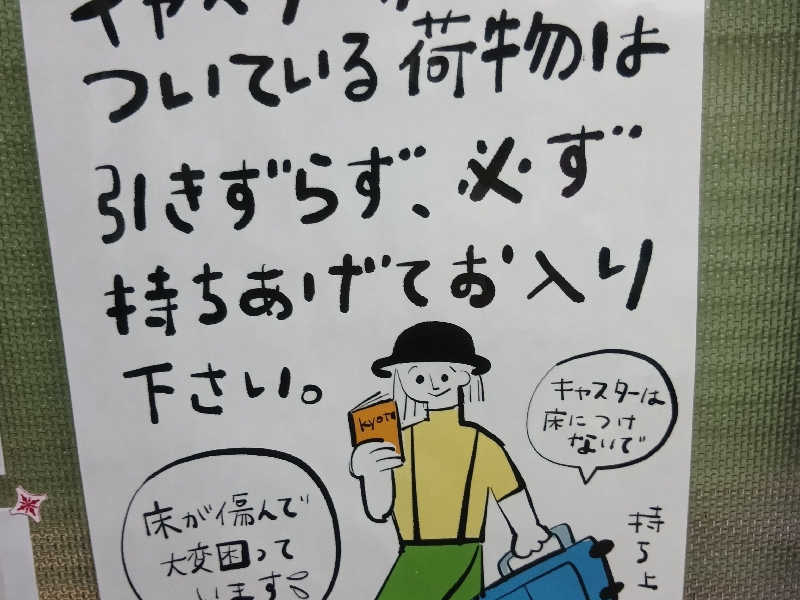 キャスターが
ついている荷物は
引きずらず、必ず
持ちあげてお入り
下さい。
KYOTO
キャスターは
床につけ
ないで
床が傷んで
大変困って
います
持ち上